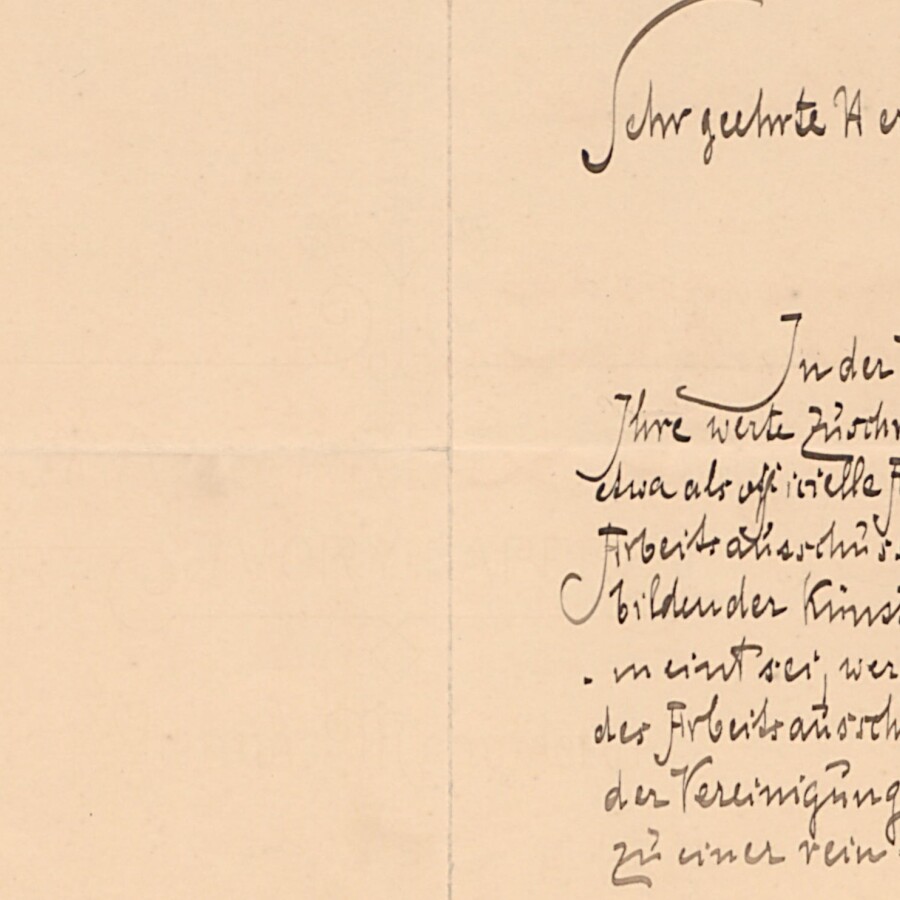 Sehr geehrte Her
In der
Ihre werte Zuschr
etwa als officielle
Arbeitsausschus
bildender Künst
meint sei, wer
des Arbeitsaussch
der Vereinigung
zu einer rein